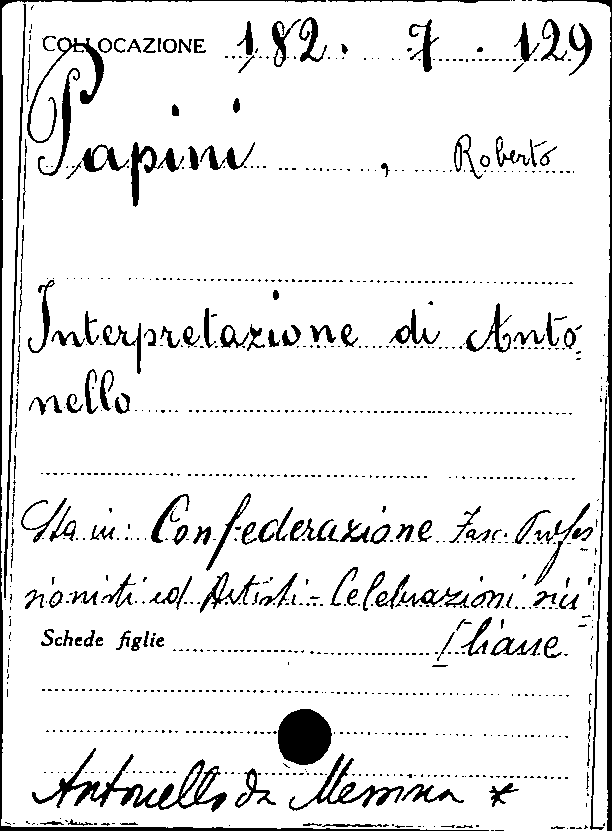 COLLOCAZIONE 182. 7. 129
Papini, Roberto
Interpretazione di Anto=
nello
Sta in: Confederazione Fasc. Profes
sionisti ed Artisti - Celebrazioni sici=
Schede figlie [liane
Antonello da Messina *